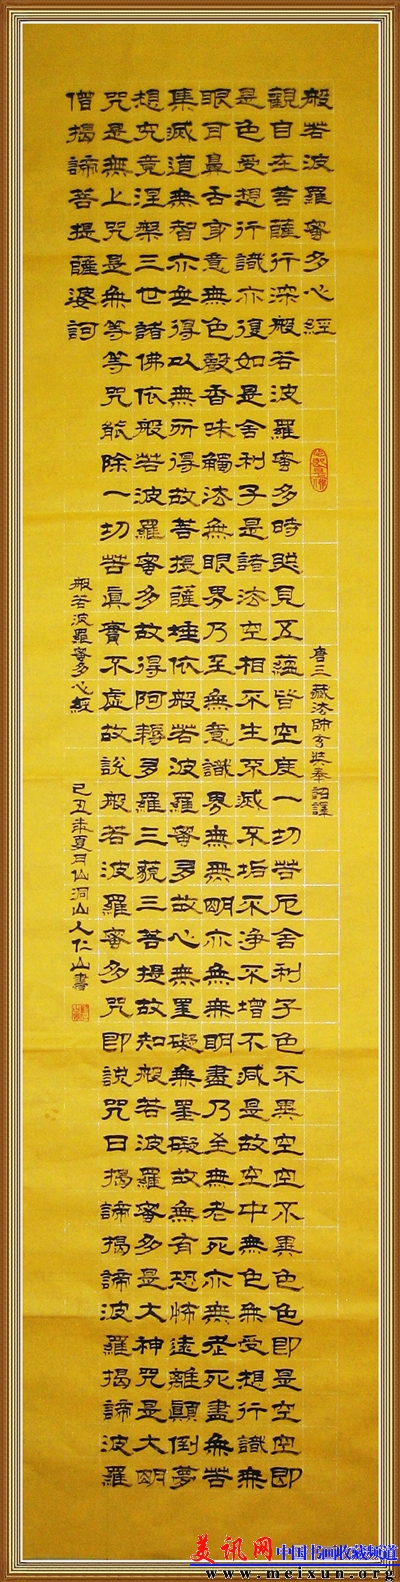 般若波羅蜜多心經
唐三藏法師玄奘奉詔譯
觀自在菩薩行深般若波羅蜜多時照見五蘊皆空度一切苦厄舍利子色不異空空不異色色即是空空即
是色受想行識亦復如是舍利子是諸法空相不生不滅不垢不淨不增不減是故空中無色無受想行識無
眼耳鼻舌身意無色聲香味觸法無眼界乃至無意識界無無明亦無無明盡乃至無老死亦無老死盡無苦
集滅道無智亦無得以無所得故菩提薩埵依般若波羅蜜多故心無罣礙無罣礙故無有恐怖遠離顛倒夢
想究竟涅槃三世諸佛依般若波羅蜜多故得阿耨多羅三藐三菩提故知般若波羅蜜多是大神咒是大明
咒是無上咒是無等等咒能除一切苦眞實不虛故說般若波羅蜜多咒即說咒曰揭諦揭諦波羅揭諦波羅
僧揭諦菩提薩婆訶
般若波羅蜜多心經
己丑年夏月仙洞山人仁山書
美讯网 中国书画收藏频道
www.meixun.org